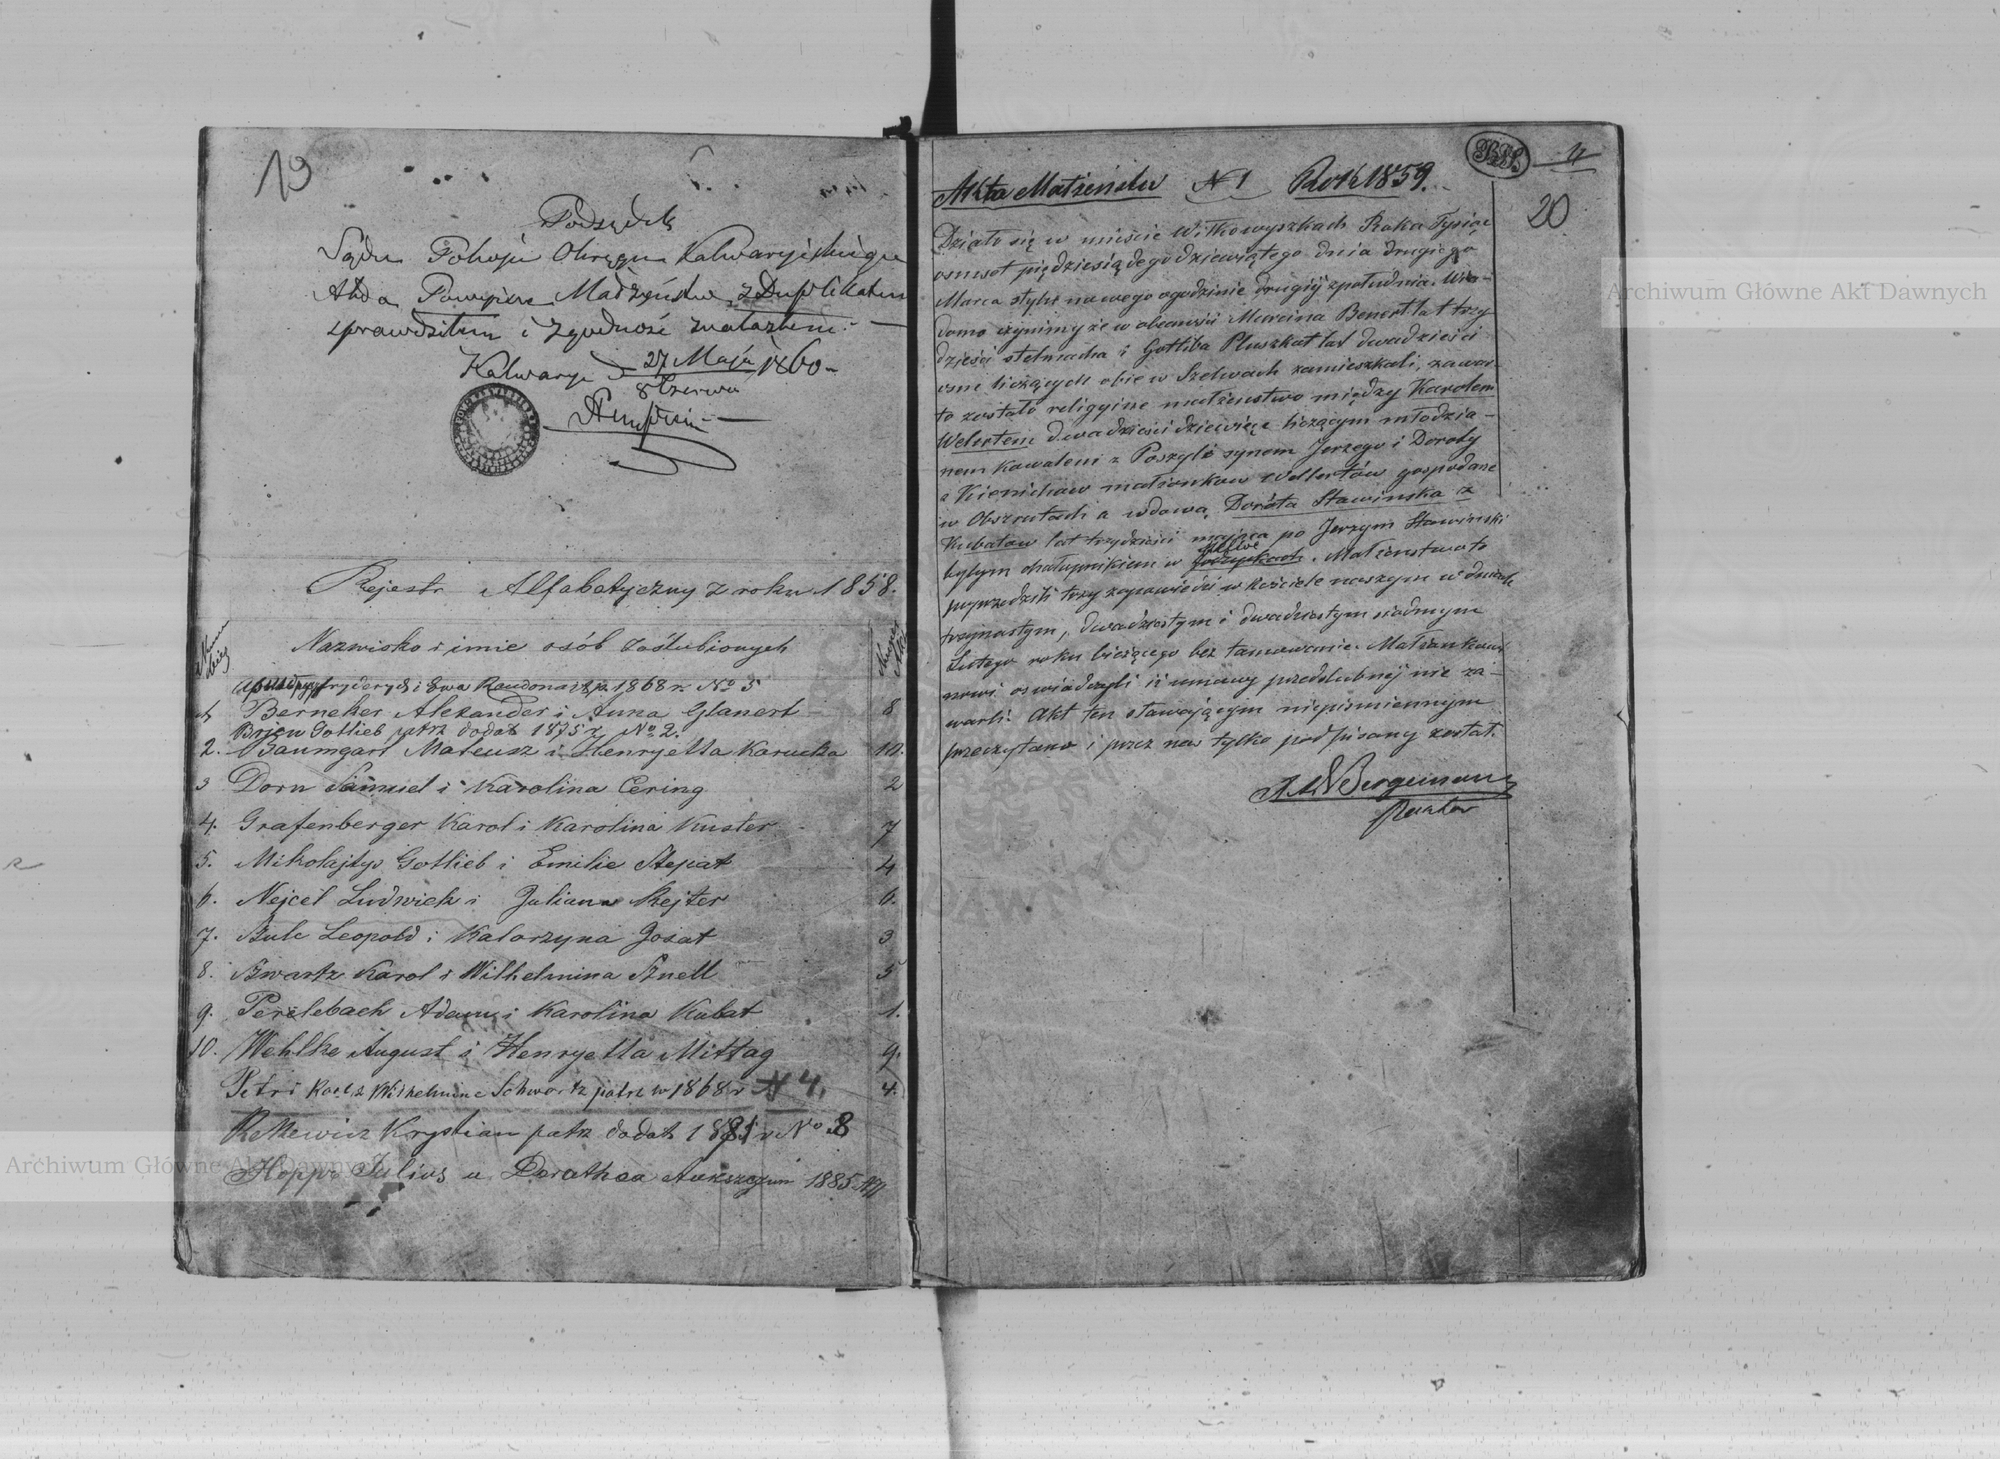 19
Podsędek
Sądu Pokoju Okręgu Kalwaryjskiego
Akta Powyższe Małżeństw z Duplikatem
sprawdziłem i zgodność znalazłem.
Kalwarya d 27 Maja 1860
8 Czerwca
Rejestr Alfabetyczny z roku 1858.
Nazwisko i imie osób zaślubionych
Numer Aktu
Fryderyk i Ewa Raudonat 1868 r. No 5
1 Berneker Alexander i Anna Glanert 8
Gottlieb patrz dodat 1875 r. No 2.
2. Baumgart Mateusz i Henryetta Karucka 10.
3 Dorn Samuel i Karolina Cering 2
4. Grafenberger Karol i Karolina Kuster 7
5. Mikolajtys Gotlieb i Emilie Stepat 4
6. Nejcel Ludwick i Julianna Rejter 6.
7. Bulc Leopold i Katarzyna Josat 3
8. Szwartz Karol i Wilhelmina Sznell 5
9. Perelebach Adam i Karolina Kubat 1.
10. Wehlke August i Henryetta Mittag 9.
Petri Karl i Wilhelmine Schwartz patrz w 1868 r N 4. 4.
Rekewicz Krystian patrz dodat r No 8
Hoppe Julius u Dorothea 1885
Akta Małżeństw N 1 Rok 1859.
4
20
Działo się w mieście Wiłkowyszkach Roku Tysiąc
osmset pięćdziesiądego dziewiątego dnia drugiego
Marca stylu nowego o godzinie drugiy z południa. Wia-
domo czynimy że w obecności Marcina Benert lat trzy
dzieści stelmacha i Gotliba Pluszkat lat dwadzieścia
osme liczących obie w Szelwach zamieszkali, zawar-
to zostało religyine małżenstwo między Karolem
Welertem dwadzieści dziewięć liczącym młodzia-
nem kawalerem z Poszyla synem Jerzego i Doroty
z małżonkow Wellertów gospodarze
w Obszrutach a wdową Dorota Stawinska z
Kubatow lat trzydzieści mająca po Jerzym Stawinski
byłym chałupnikiem w . Małżenstwo to
poprzedzili trzy zapowiedzi w kościele naszym w dniach
trzynastym, dwadziestym i dwadziestym siodmym
Lutego roku bieżącego bez tamowania. Małżonkowie
nowi oswiadczyli iż umowy przedslubnej nie za-
warli. Akt ten stawającym niepismiennym
przeczytano i przez nas tylko podpisany został.
Bergemann
Pastor
Archiwum Główne Akt Dawnych
Archiwum Główne Akt Dawnych